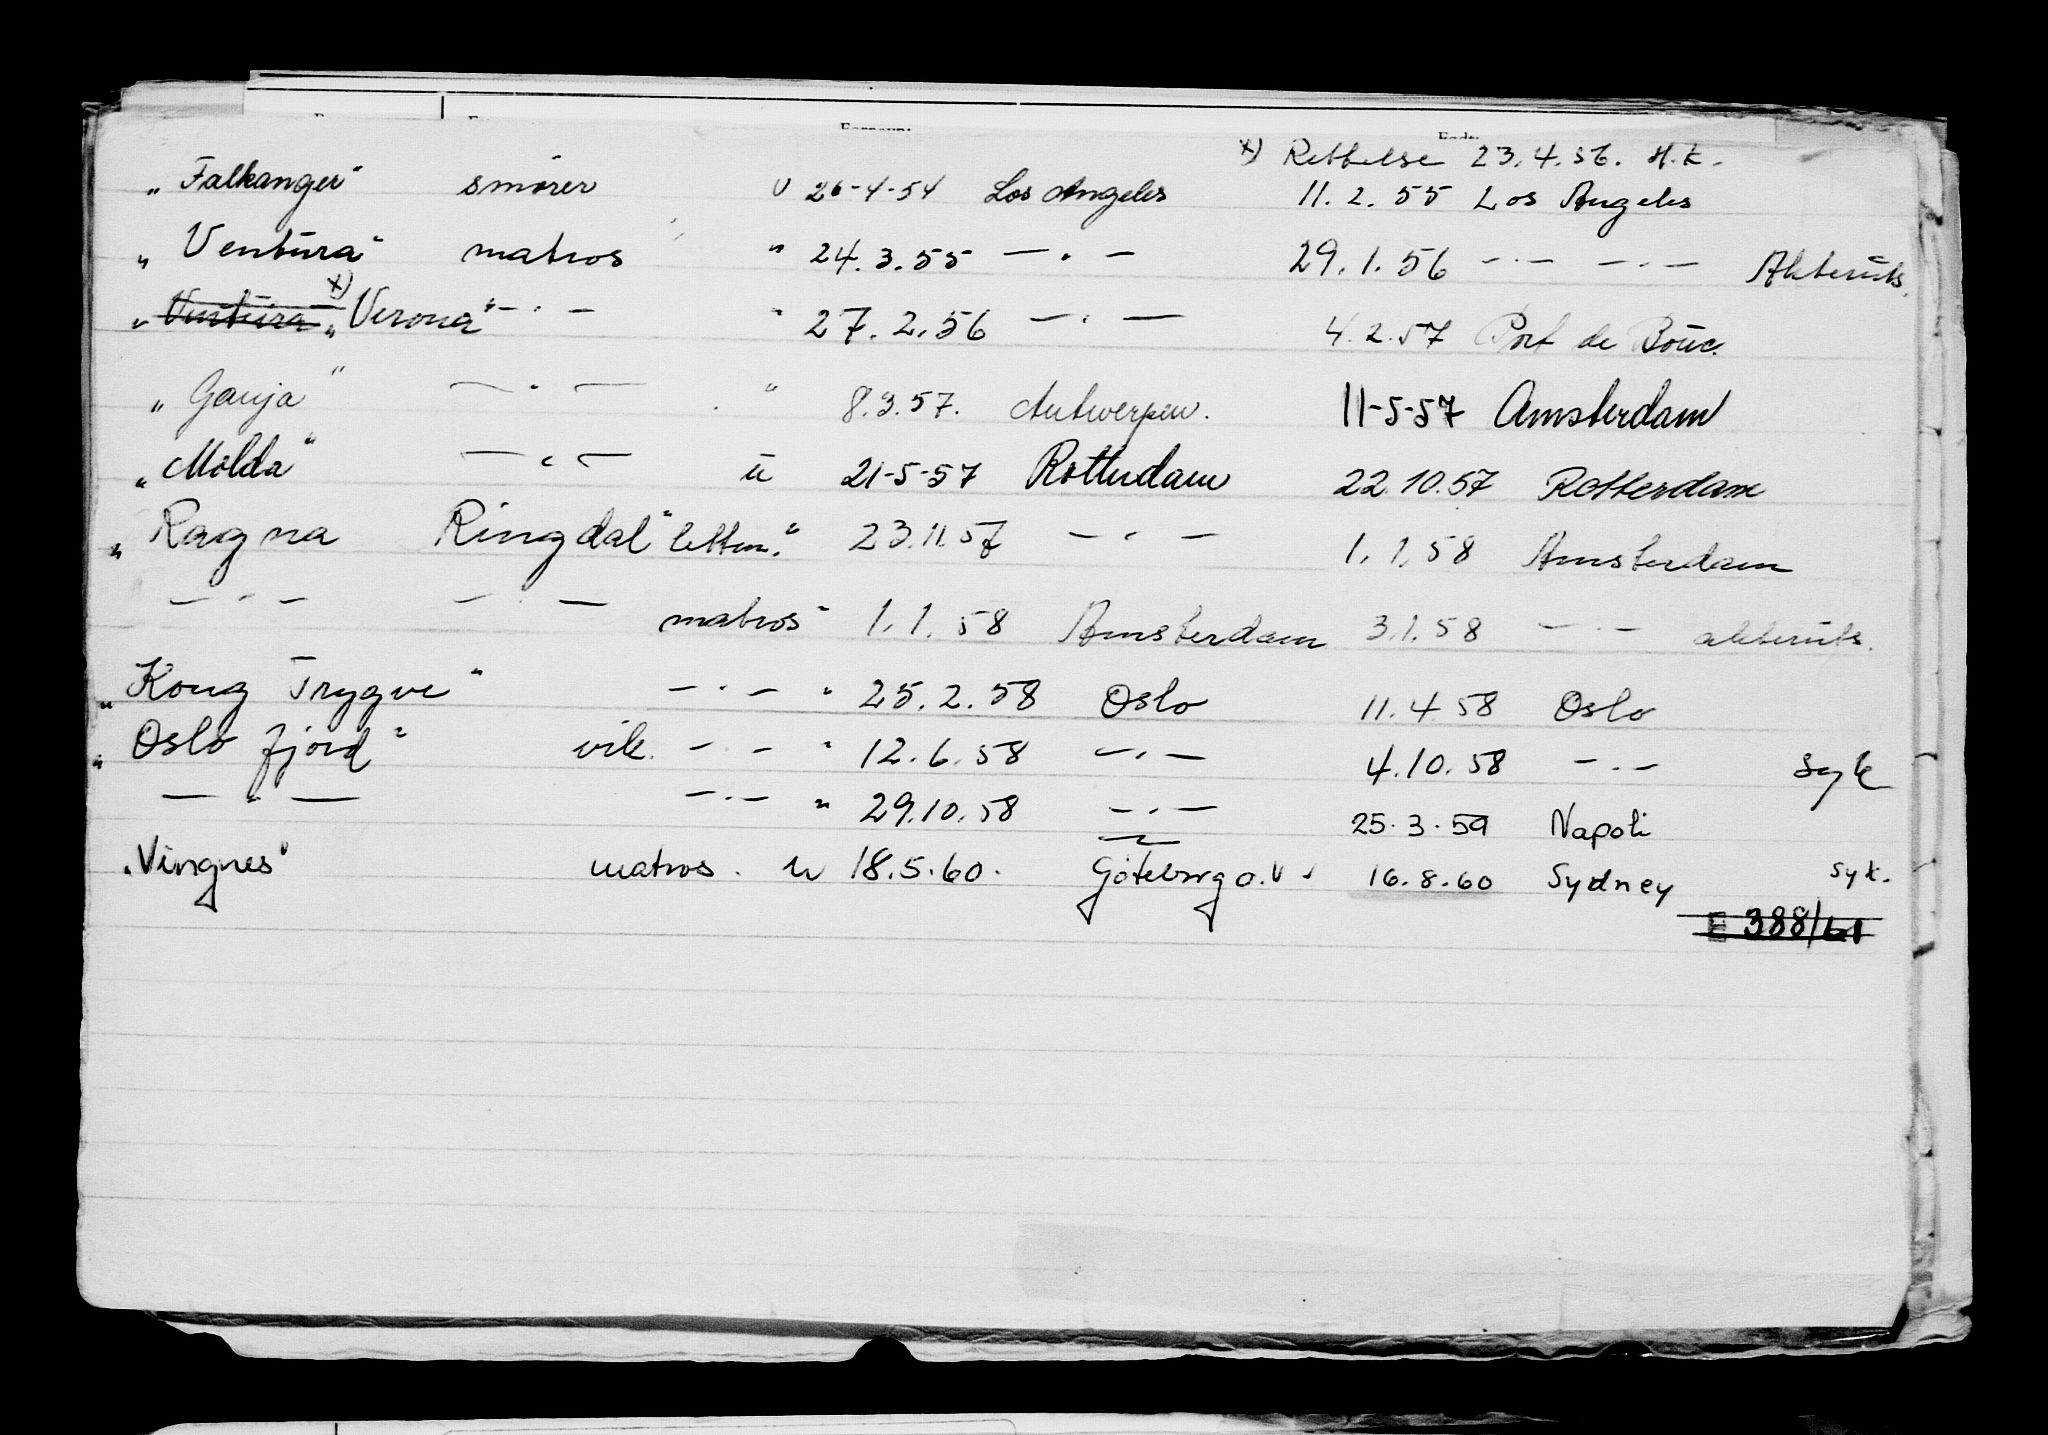 x) Rettelse 23.4.56. H.K.
„Falkanger" smører u 26-4-54 Los Angeles 11.2.55 Los Angeles
„Ventura" matros " 24.3.55 — " — 29.1.56 — " — — " — Akteruts.
„Ventura x) „Verona" — " — " 27.2.56 — " — 4.2.57 Port de Bouc.
„Ganja" — " — " 8.3.57. Antwerpen. 11-5-57 Amsterdam
„Molda" — " — u 21-5-57 Rotterdam 22.10.57 Rotterdam
„Ragna Ringdal" lettm. " 23.11.57 — " — 1.1.58 Amsterdam
— " — — " — matros " 1.1.58 Amsterdam 3.1.58 — " — akteruts.
„Kong Trygve" — " — " 25.2.58 Oslo 11.4.58 Oslo
„Oslofjord" vik. — " — " 12.6.58 — " — 4.10.58 — " — Syk
— " — — " — " 29.10.58 — " — 25.3.59 Napoli
„Vingnes" matros. u 18.5.60. Göteborg o.v. 16.8.60 Sydney Syk.
E 388/61